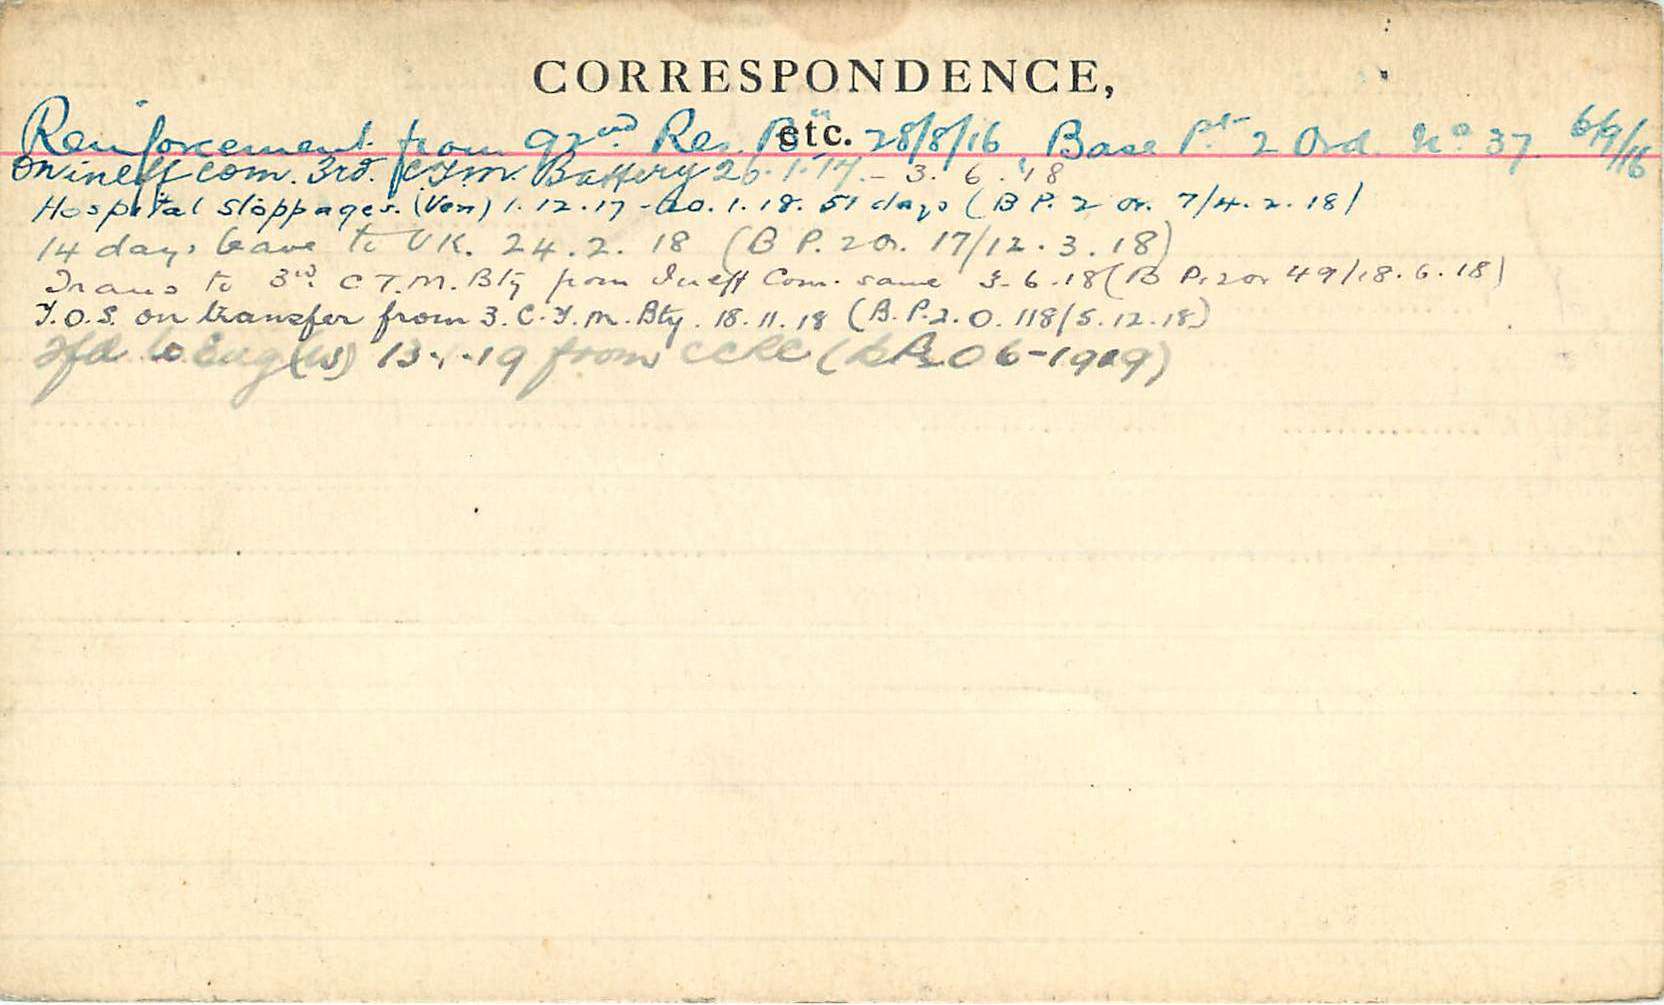 CORRESPONDENCE,
etc.
Reinforcement from 92nd Res. Bn 28/8/16 Base Pt 2 Ord. No 37. 6/9/16
On ineff com. 3rd. C.T.M. Battery 26.1.17. - 3.6.18
Hospital stoppages. (Ven) 1.12.17 - 20.1.18. 51 days (B P. 2 or. 7/4.2.18)
14 days leave to UK. 24.2.18 (B P. 2 or. 17/12.3.18)
Trans to 3rd. C T.M. Bty from Ineff Com. same 3.6.18 (B P. 2 or 49/18.6.18)
T.O.S. on transfer from 3.C.T.M. Bty. 18.11.18 (B.P.2.O. 118/5.12.18)
Tfd to Eng(ws) 13-1-19 from CCRC (